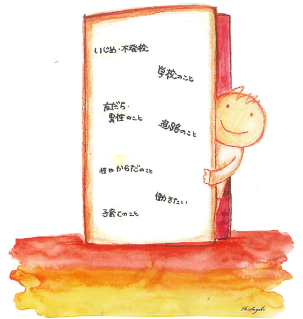 いじめ・不登校
学校のこと
友だち・
異性のこと
進路のこと
性や からだのこと
働きたい
子育てのこと